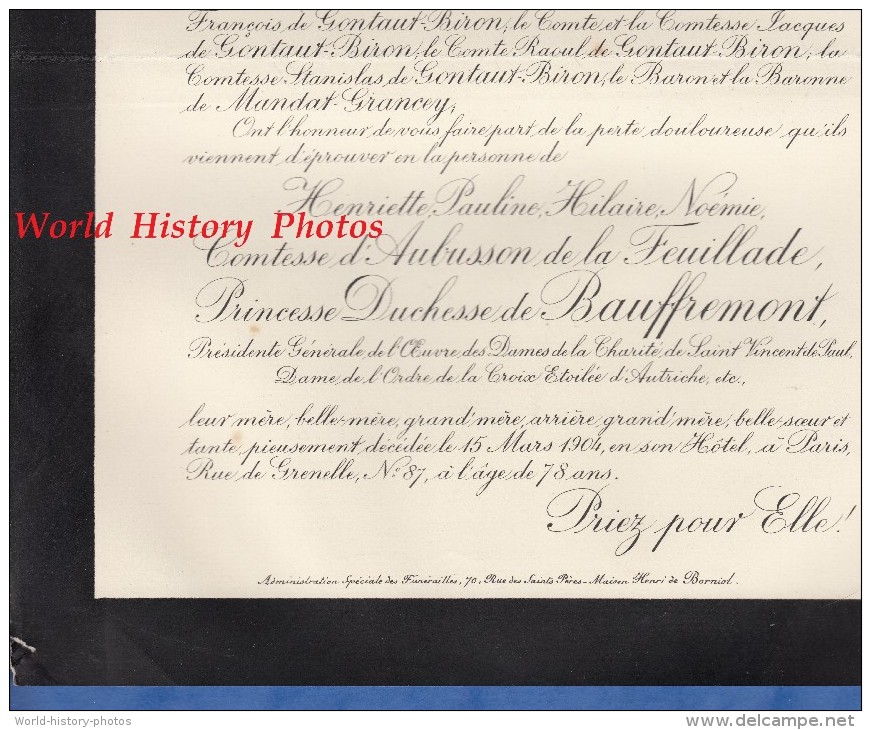 François de Gontaut-Biron, le Comte et la Comtesse Jacques
de Gontaut-Biron, le Comte Raoul de Gontaut-Biron, la
Comtesse Stanislas de Gontaut-Biron, le Baron et la Baronne
de Mandat-Grancey;
Ont l'honneur de vous faire part de la perte douloureuse qu'ils
viennent d'éprouver en la personne de
Henriette, Pauline, Hilaire, Noémie,
World History Photos
Comtesse d'Aubusson de la Feuillade,
Princesse Duchesse de Bauffremont,
Présidente Générale de l'Œuvre des Dames de la Charité de Saint Vincent de Paul,
Dame de l'Ordre de la Croix Etoilée d'Autriche, etc.,
leur mère, belle-mère, grand'mère, arrière grand'mère, belle-sœur et
tante, pieusement décédée le 15 Mars 1904, en son Hôtel, à Paris,
Rue de Grenelle, No 87, à l'âge de 78 ans.
Priez pour Elle!
Administration Spéciale des Funérailles, 70, Rue des Saints Pères - Maison Henri de Borniol.
World-history-photos
delcampe.net